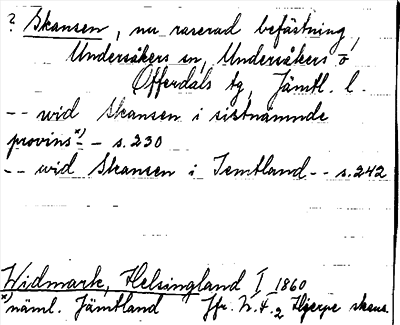 ? Skansen, nu raserad befästning,
Undersåkers sn, Undersåkers o
Offerdals tg, Jämtl. l.
-- wid Skansen i sistnämnde
provins x) - - s. 230
-- wid Skansen i Jemtland -- s. 242
Widmark, Helsingland I 1860
x) näml. Jämtland Jfr. N. f. 2 Hjerpe skans.